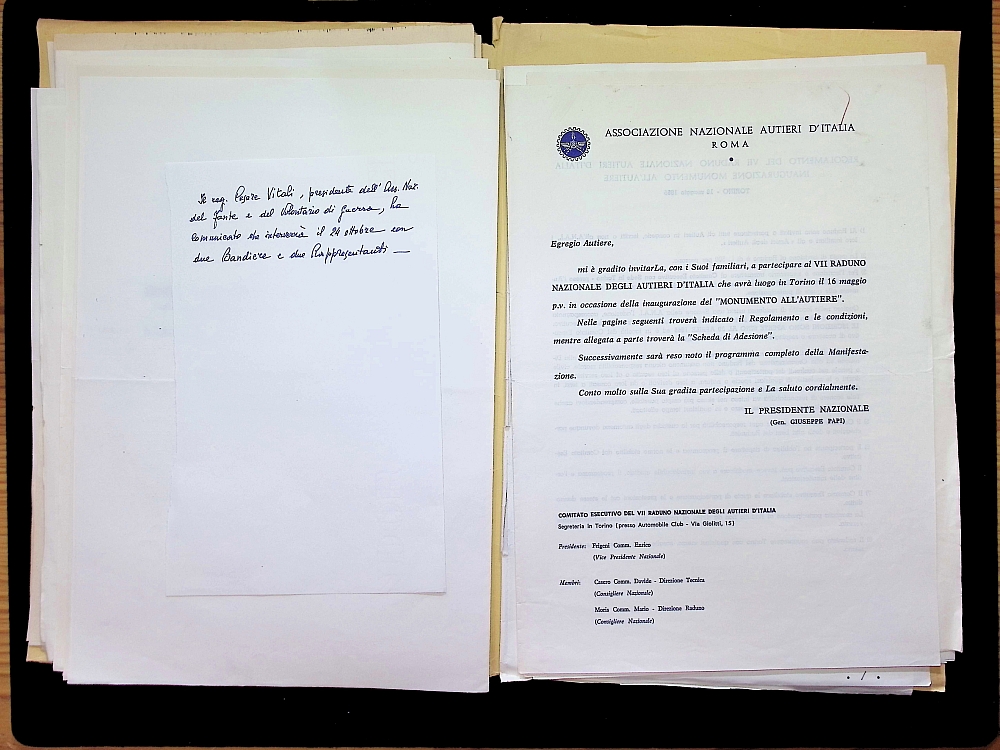 Il rag. Cesare Vitali, presidente dell'Ass. Naz.
del Fante e del Volontario di guerra, ha
comunicato che interverrà il 24 ottobre con
due Bandiere e due Rappresentanti —
ASSOCIAZIONE NAZIONALE AUTIERI D'ITALIA
ROMA
Egregio Autiere,
mi è gradito invitarLa, con i Suoi familiari, a partecipare al VII RADUNO
NAZIONALE DEGLI AUTIERI D'ITALIA che avrà luogo in Torino il 16 maggio
p.v. in occasione della inaugurazione del "MONUMENTO ALL'AUTIERE".
Nelle pagine seguenti troverà indicato il Regolamento e le condizioni,
mentre allegata a parte troverà la "Scheda di Adesione".
Successivamente sarà reso noto il programma completo della Manifesta-
zione.
Conto molto sulla Sua gradita partecipazione e La saluto cordialmente.
IL PRESIDENTE NAZIONALE
(Gen. GIUSEPPE PAPI)
COMITATO ESECUTIVO DEL VII RADUNO NAZIONALE DEGLI AUTIERI D'ITALIA
Segreteria in Torino (presso Automobile Club - Via Giolitti, 15)
Presidente: Frigeni Comm. Enrico
(Vice Presidente Nazionale)
Membri: Casero Comm. Davide - Direzione Tecnica
(Consigliere Nazionale)
Moria Comm. Mario - Direzione Raduno
(Consigliere Nazionale)
. / .